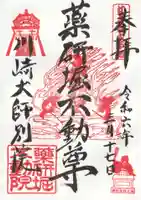 奉拝
令和六年
月十七日
薬研堀不動尊
川崎大師別院
薬研堀